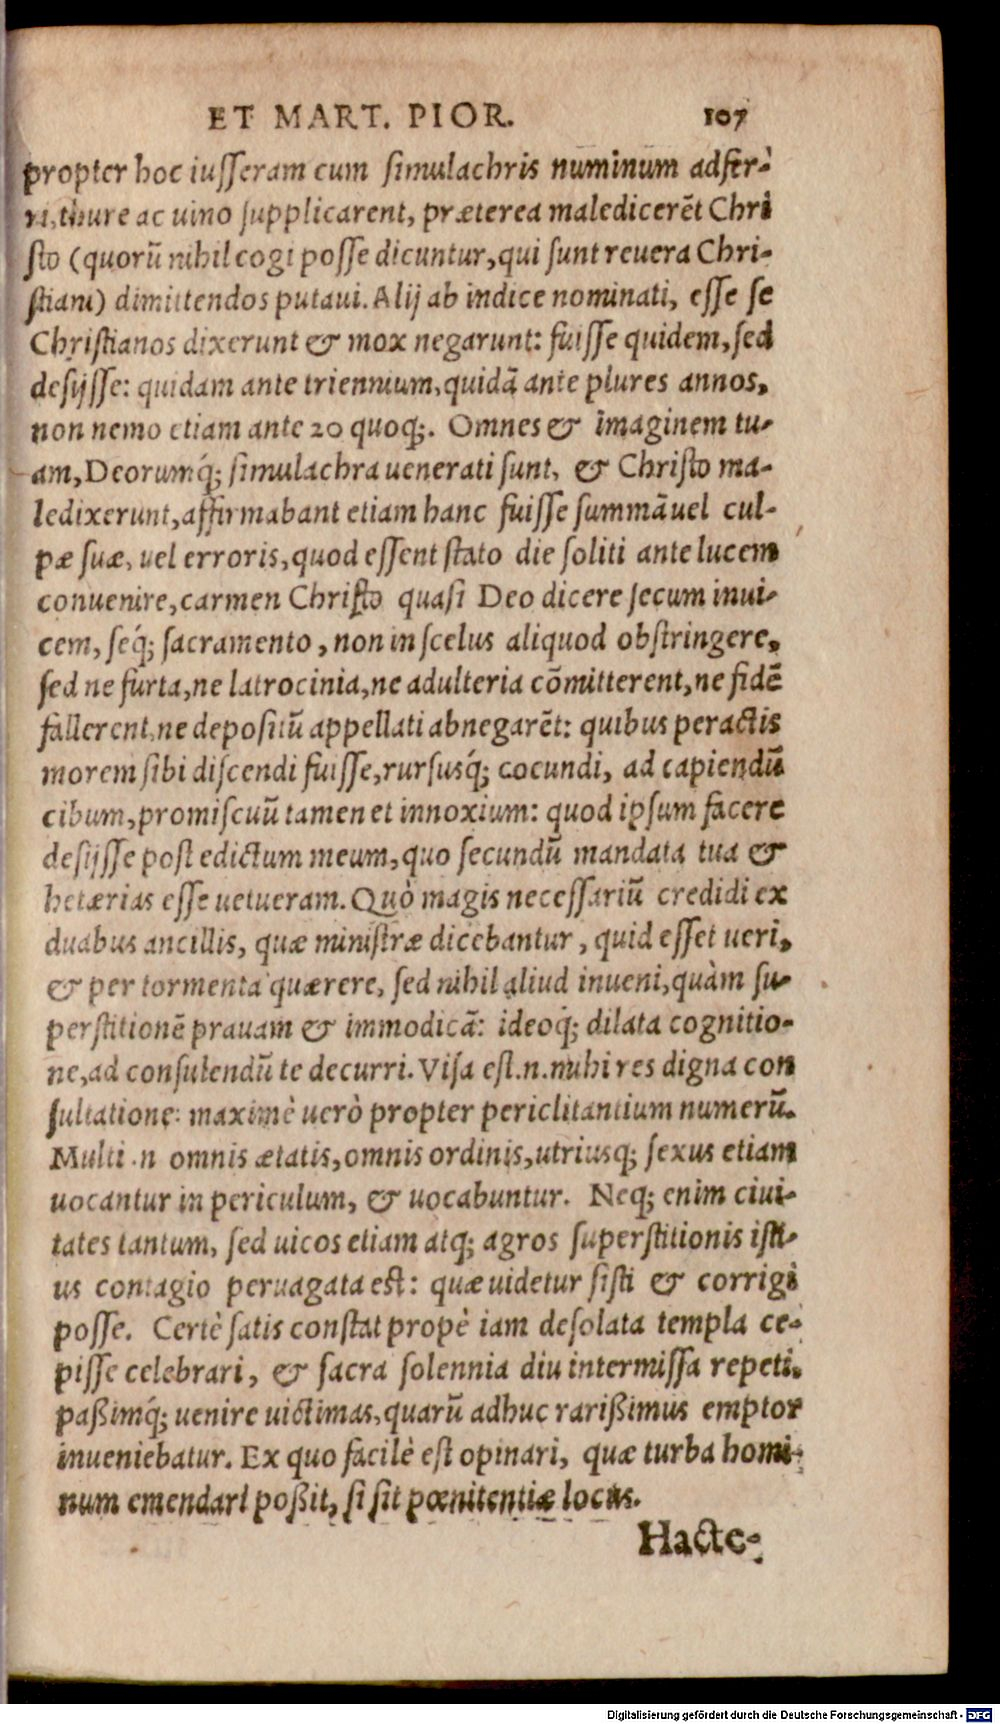 ET MART. PIOR. 107
propter hoc iusseram cum simulachris numinum adfer-
ri, thure ac uino supplicarent, præterea maledicerēt Chri
sto (quorū nihil cogi posse dicuntur, qui sunt reuera Chri-
stiani) dimittendos putaui. Alij ab indice nominati, esse se
Christianos dixerunt & mox negarunt: fuisse quidem, sed
desijsse: quidam ante triennium, quidā ante plures annos,
non nemo etiam ante 20 quoq;. Omnes & imaginem tu-
am, Deorumq́; simulachra uenerati sunt, & Christo ma-
ledixerunt, affirmabant etiam hanc fuisse summā uel cul-
pæ suæ, uel erroris, quod essent stato die soliti ante lucem
conuenire, carmen Christo quasi Deo dicere secum inui-
cem, seq́; sacramento, non in scelus aliquod obstringere,
sed ne furta, ne latrocinia, ne adulteria cōmitterent, ne fidē
fallerent, ne depositū appellati abnegarēt: quibus peractis
morem sibi discendi fuisse, rursusq́; cocundi, ad capiendū
cibum, promiscuū tamen et innoxium: quod ipsum facere
desijsse post edictum meum, quo secundū mandata tua &
hetærias esse uetueram. Quò magis necessariū credidi ex
duabus ancillis, quæ ministræ dicebantur, quid esset ueri,
& per tormenta quærere, sed nihil aliud inueni, quàm su-
perstitionē prauam & immodicā: ideoq́; dilata cognitio-
ne, ad consulendū te decurri. Visa est .n. mihi res digna con
sultatione: maximè uerò propter periclitantium numerū.
Multi .n omnis ætatis, omnis ordinis, utriusq; sexus etiam
uocantur in periculum, & uocabuntur. Neq; enim ciui-
tates tantum, sed uicos etiam atq; agros superstitionis isti-
us contagio peruagata est: quæ uidetur sisti & corrigi
posse. Certè satis constat propè iam desolata templa cœ-
pisse celebrari, & sacra solennia diu intermissa repeti,
paßimq́; uenire uictimas, quarū adhuc rarißimus emptor
inueniebatur. Ex quo facilè est opinari, quæ turba homi-
num emendari poßit, si sit pœnitentiæ locus.
Hacte-
Digitalisierung gefördert durch die Deutsche Forschungsgemeinschaft - DFG